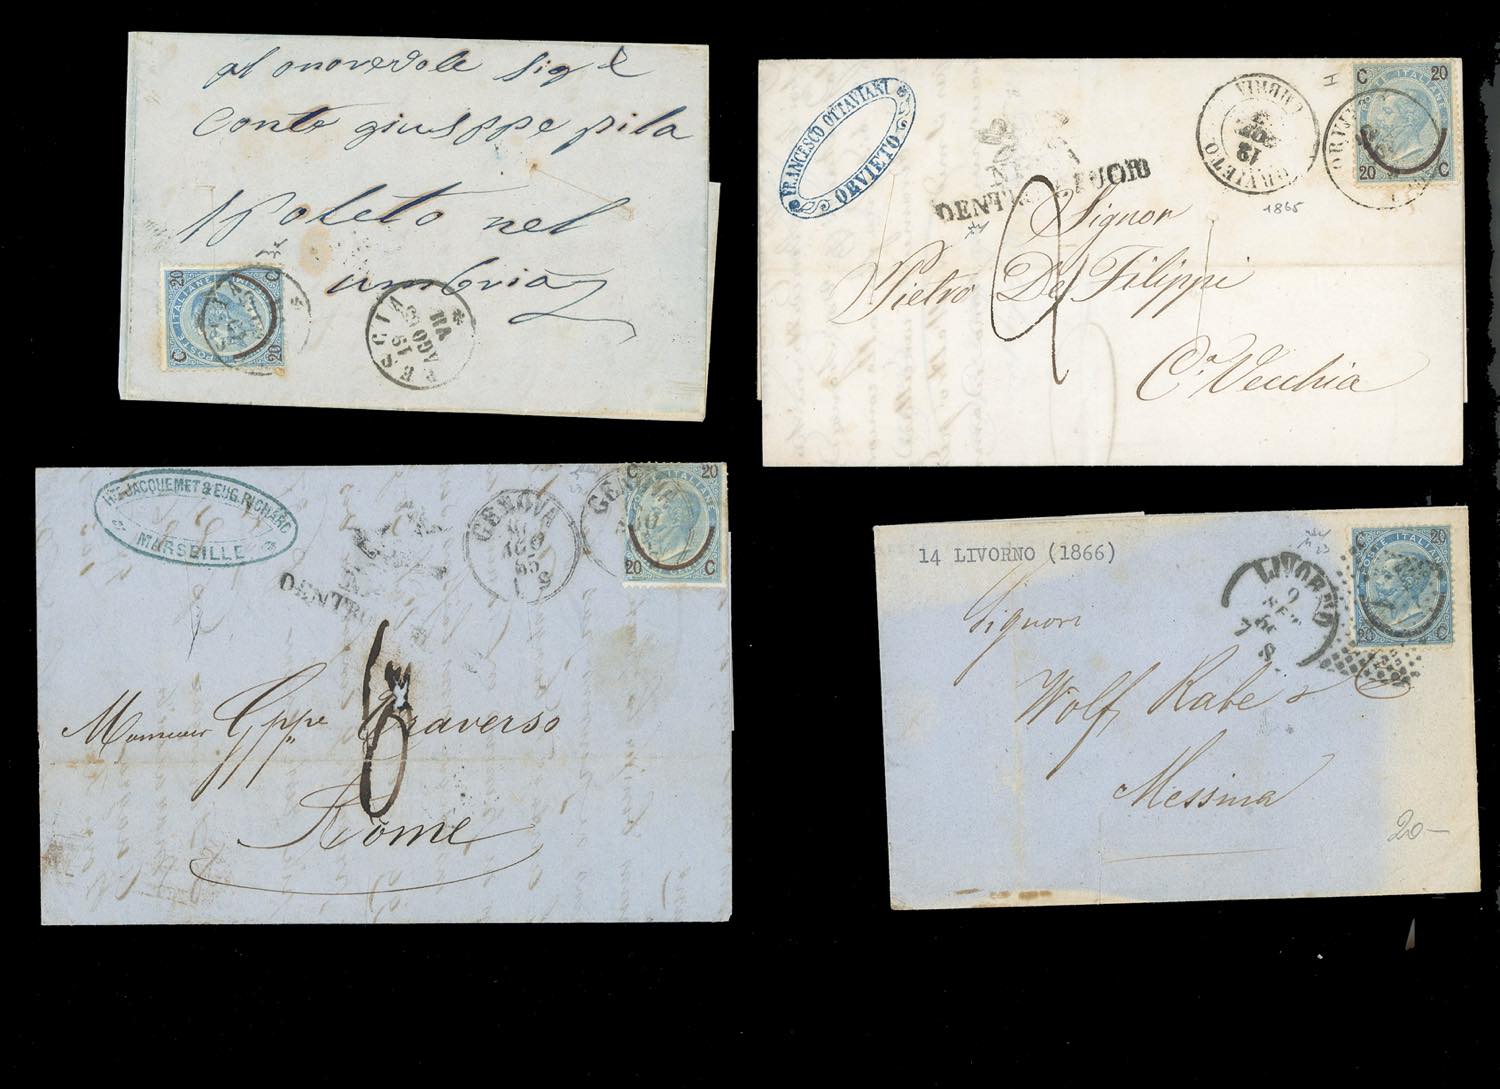 al onorevole Sig e
Conte giuseppe pila
Spoleto nel
umbria
C 20
20 C
PESCIA
19
AGO
65
VII
FRANCESCO OTTAVIANI
ORVIETO
DENTRO FUORI
ORVIETO
UMBRIA
19
1865
C 20
POSTE ITALIANE
20 C
Signor
Pietro De Filippi
Ca. Vecchia
JACQUEMET & EUG. RICHARD
MARSEILLE
DENTRO
GENOVA
AGO
65
GENOVA
C 20
20 C
Monsieur Gppe Traverso
Rome
14 LIVORNO (1866)
LIVORNO
9
C 20
POSTE ITALIANE
20 C
Signori
Wolf, Rabe &
Messina
20-